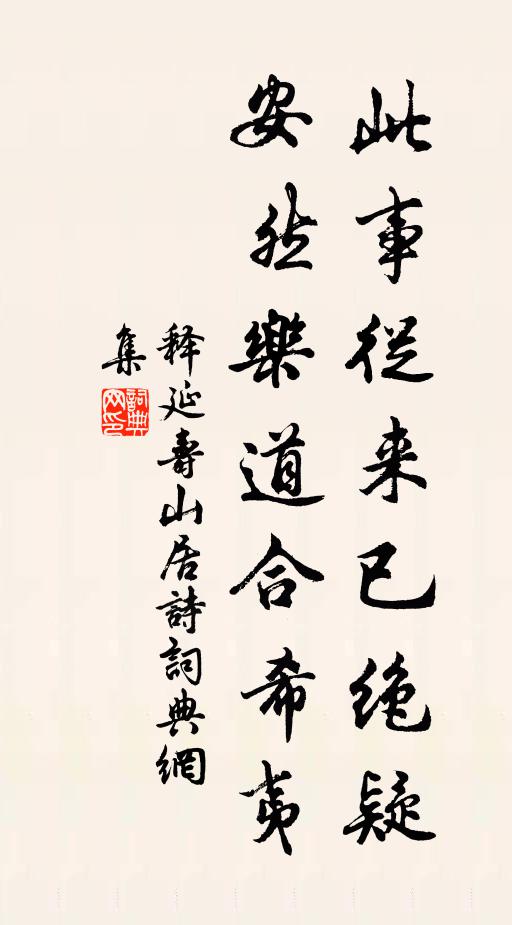 此事從来已绝疑
安然樂道合希夷
释延壽山居詩詞典網
集
詞典
网印